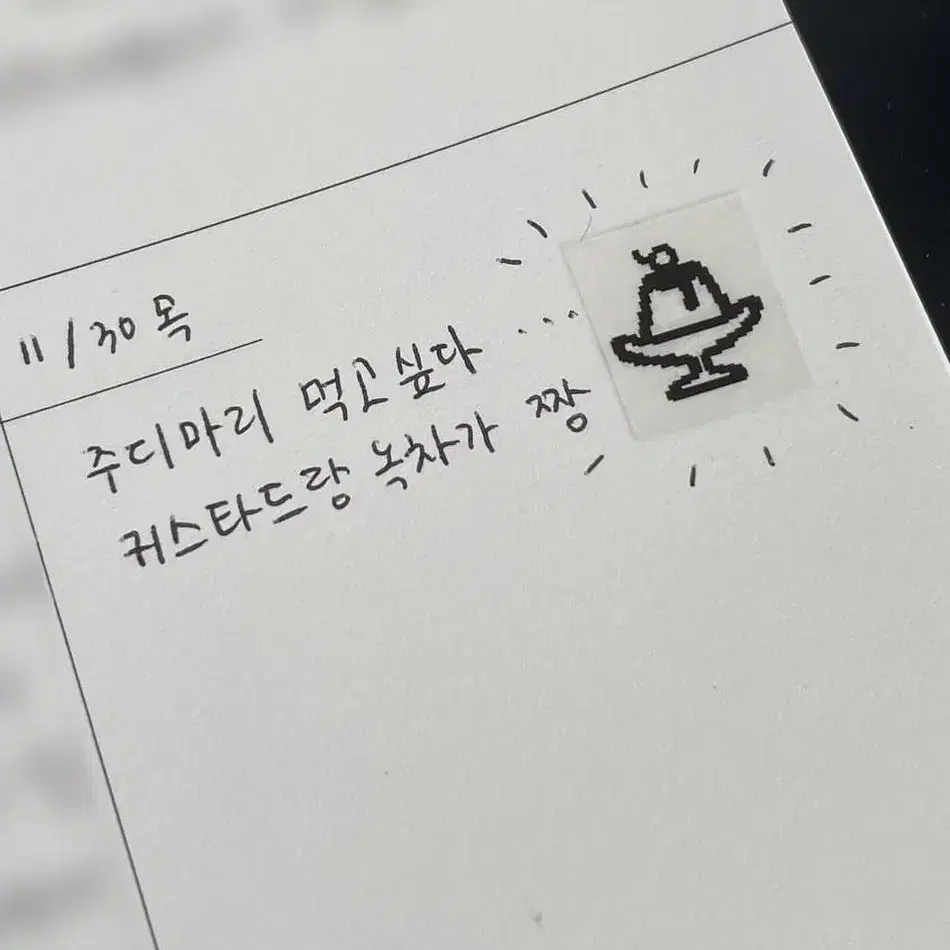 11/30 목
주디마리 먹고싶다 ...
커스타드랑 녹차가 짱